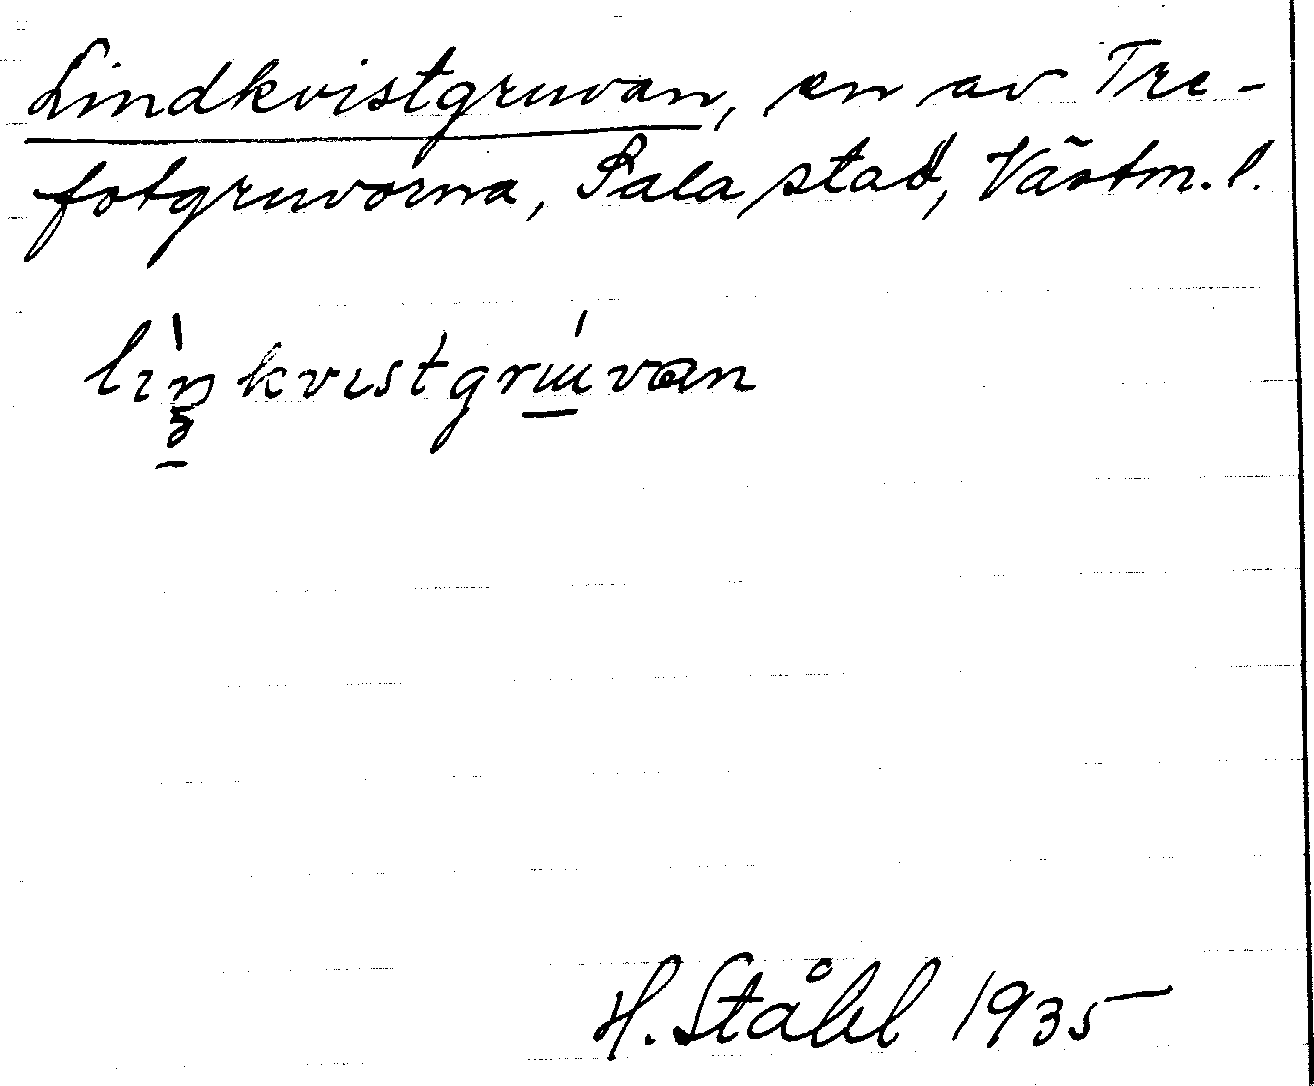 Lindkvistgruvan, en av Tre-
fotgruvorna, Sala stad, Västm. l.
lìn̥kvıstgrɯ́van
H. Ståhl 1935